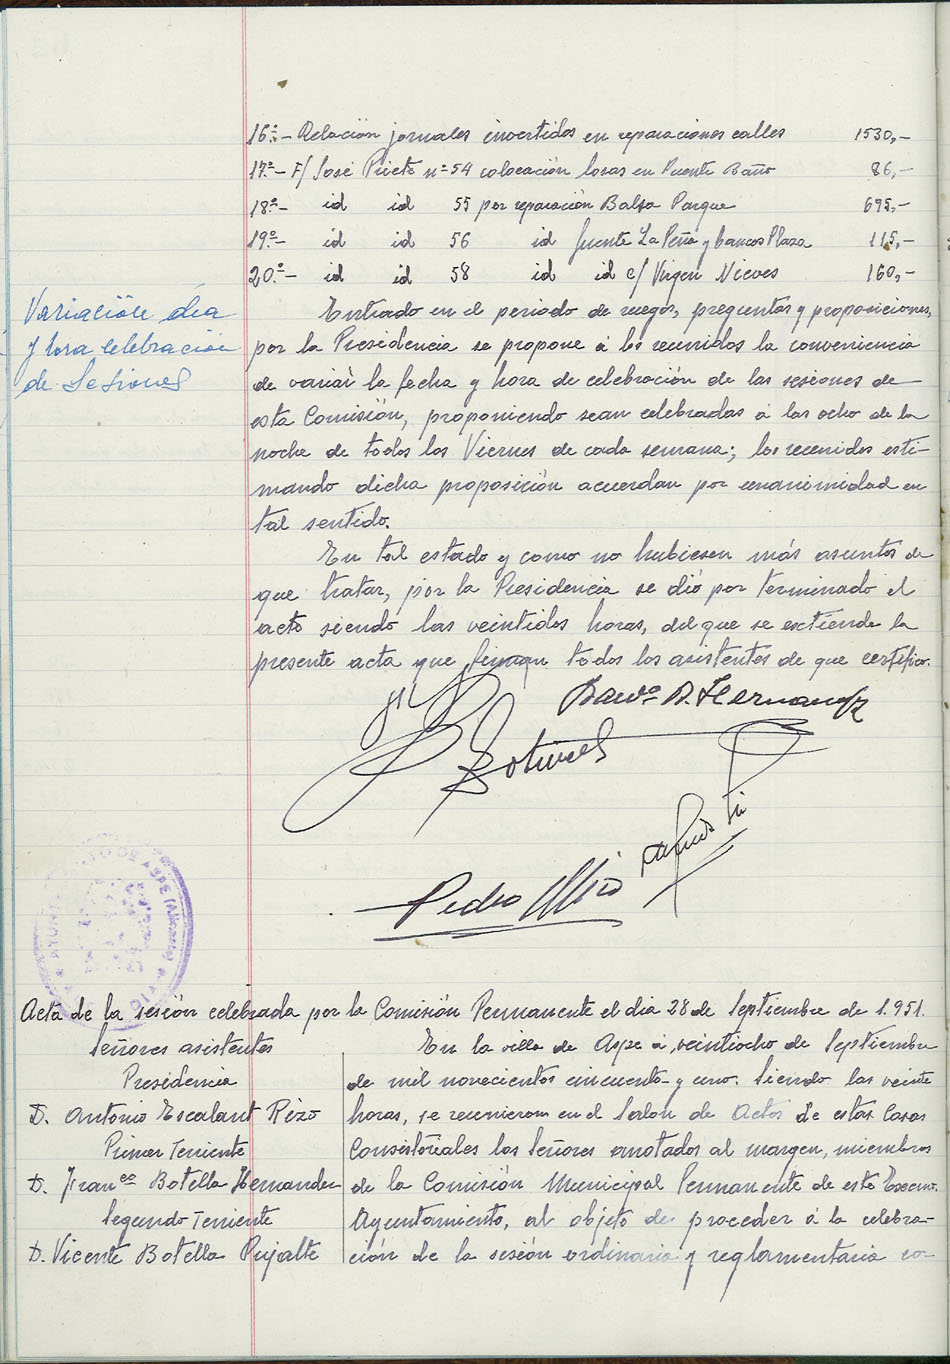 16º.- Relación jornales invertidos en reparaciones calles 1530,-
17º.- F/ José Prieto nº 54 colocación losas en Puente Baño 86,-
18º.- id id 55 por reparación Balsa Parque 695,-
19º.- id id 56 id fuente La Peña y bancos Plaza 115,-
20º.- id id 58 id id c/ Virgen Nieves 160,-
Variación día
y hora celebración
de Sesiones
Entrado en el periodo de ruegos, preguntas y proposiciones,
por la Presidencia se propone á los reunidos la conveniencia
de variar la fecha y hora de celebración de las sesiones de
esta Comisión, proponiendo sean celebradas á las ocho de la
noche de todos los Viernes de cada semana; los reunidos esti-
mando dicha proposición acuerdan por unanimidad en
tal sentido.
En tal estado y como no hubiesen más asuntos de
que tratar, por la Presidencia se dió por terminado el
acto siendo las veintidos horas, del que se extiende la
presente acta que firman todos los asistentes de que certifico.
B. Hernandez
Botella
Pedro
AYUNTAMIENTO DE ASPE (Alicante)
Acta de la sesión celebrada por la Comisión Permanente el dia 28 de Septiembre de 1.951.
Señores asistentes
Presidencia
D. Antonio Escalant Rizo
Primer Teniente
D. Franco Botella Hernandez
Segundo Teniente
D. Vicente Botella Pujalte
En la villa de Aspe á veintiocho de Septiembre
de mil novecientos cincuenta y uno. Siendo las veinte
horas, se reunieron en el Salon de Actos de estas Casas
Consistoriales los Señores anotados al margen, miembros
de la Comisión Municipal Permanente de este Excmo.
Ayuntamiento, al objeto de proceder á la celebra-
ción de la sesión ordinaria y reglamentaria co-